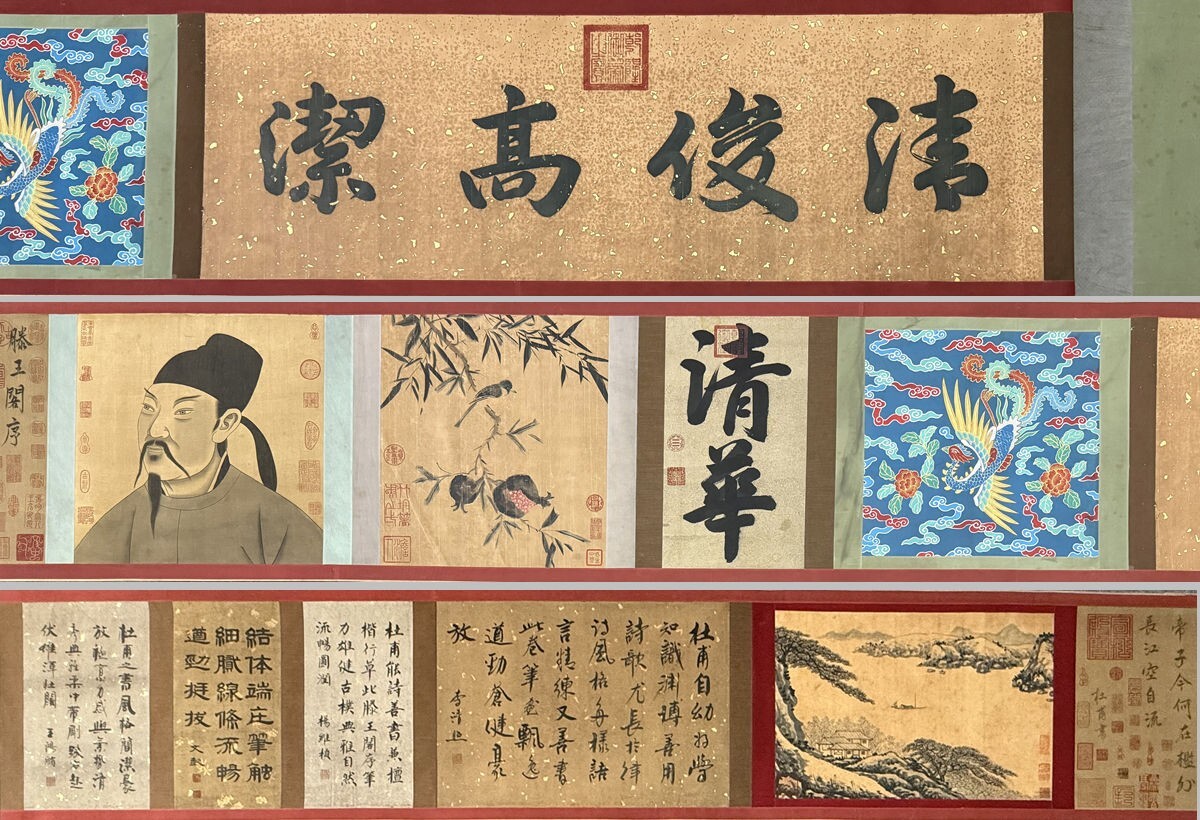 清俊高潔
清華
滕王閣序
帝子今何在檻外
長江空自流
杜甫書
杜甫自幼好學
知識淵博善用
詩歌尤長於律
詩風格多樣語
言精練又善書
此卷筆意飄逸
遒勁蒼健豪
放
杜甫能詩善書兼擅
楷行草此滕王閣序筆
力雄健古樸典雅自然
流暢圓潤 楊維楨
結体端庄筆触
細膩線條流暢
遒勁挺拔 文彭
杜甫之書風格簡潔豪
秀典雅柔中帶剛
伏雄渾壯闊